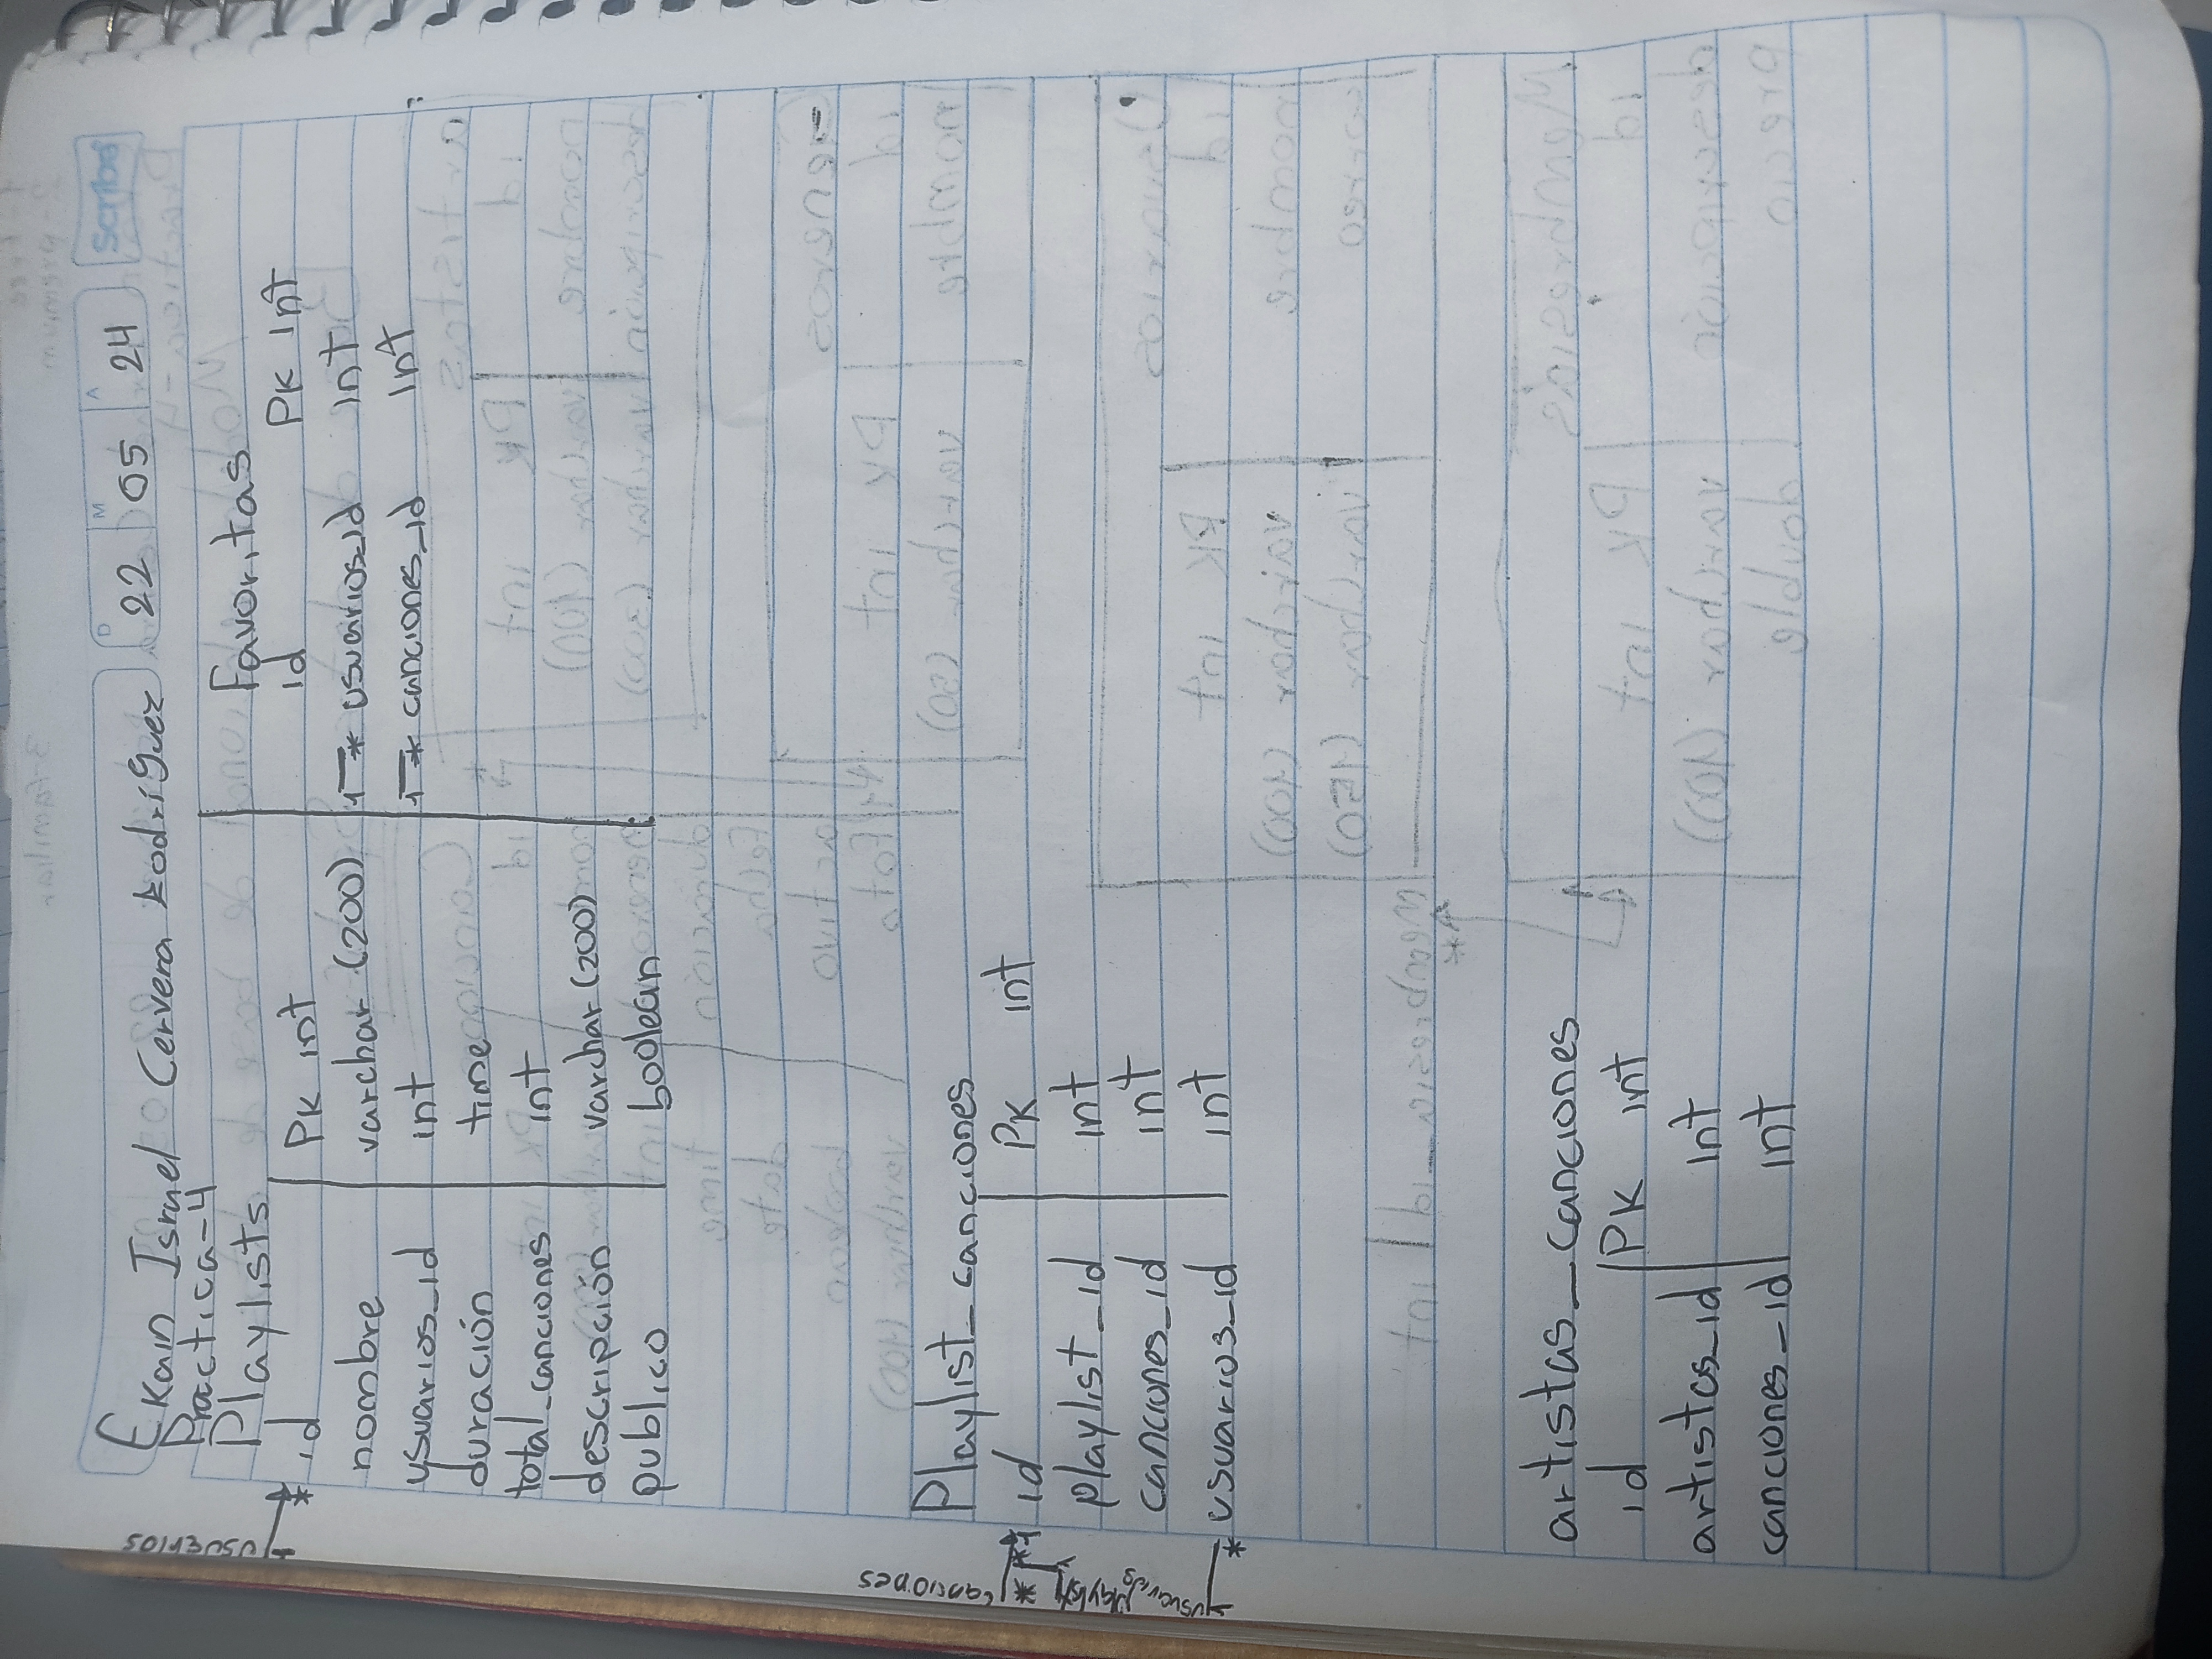 Ekain Israel Cervera Rodríguez
D 22 M 05 A 24
Scribe
Practica-4
Playlists
id PK int
nombre varchar (200)
usuarios_id int
duración time
total_canciones int
descripción varchar (200)
publico boolean
Favoritas
id PK int
1 * usuarios_id int
1 * canciones_id int
usuarios
*
Playlist_canciones
id PK int
playlist_id int
canciones_id int
* usuarios_id int
canciones
*
playlist
usuarios
artistas_canciones
id PK int
artistas_id int
canciones_id int